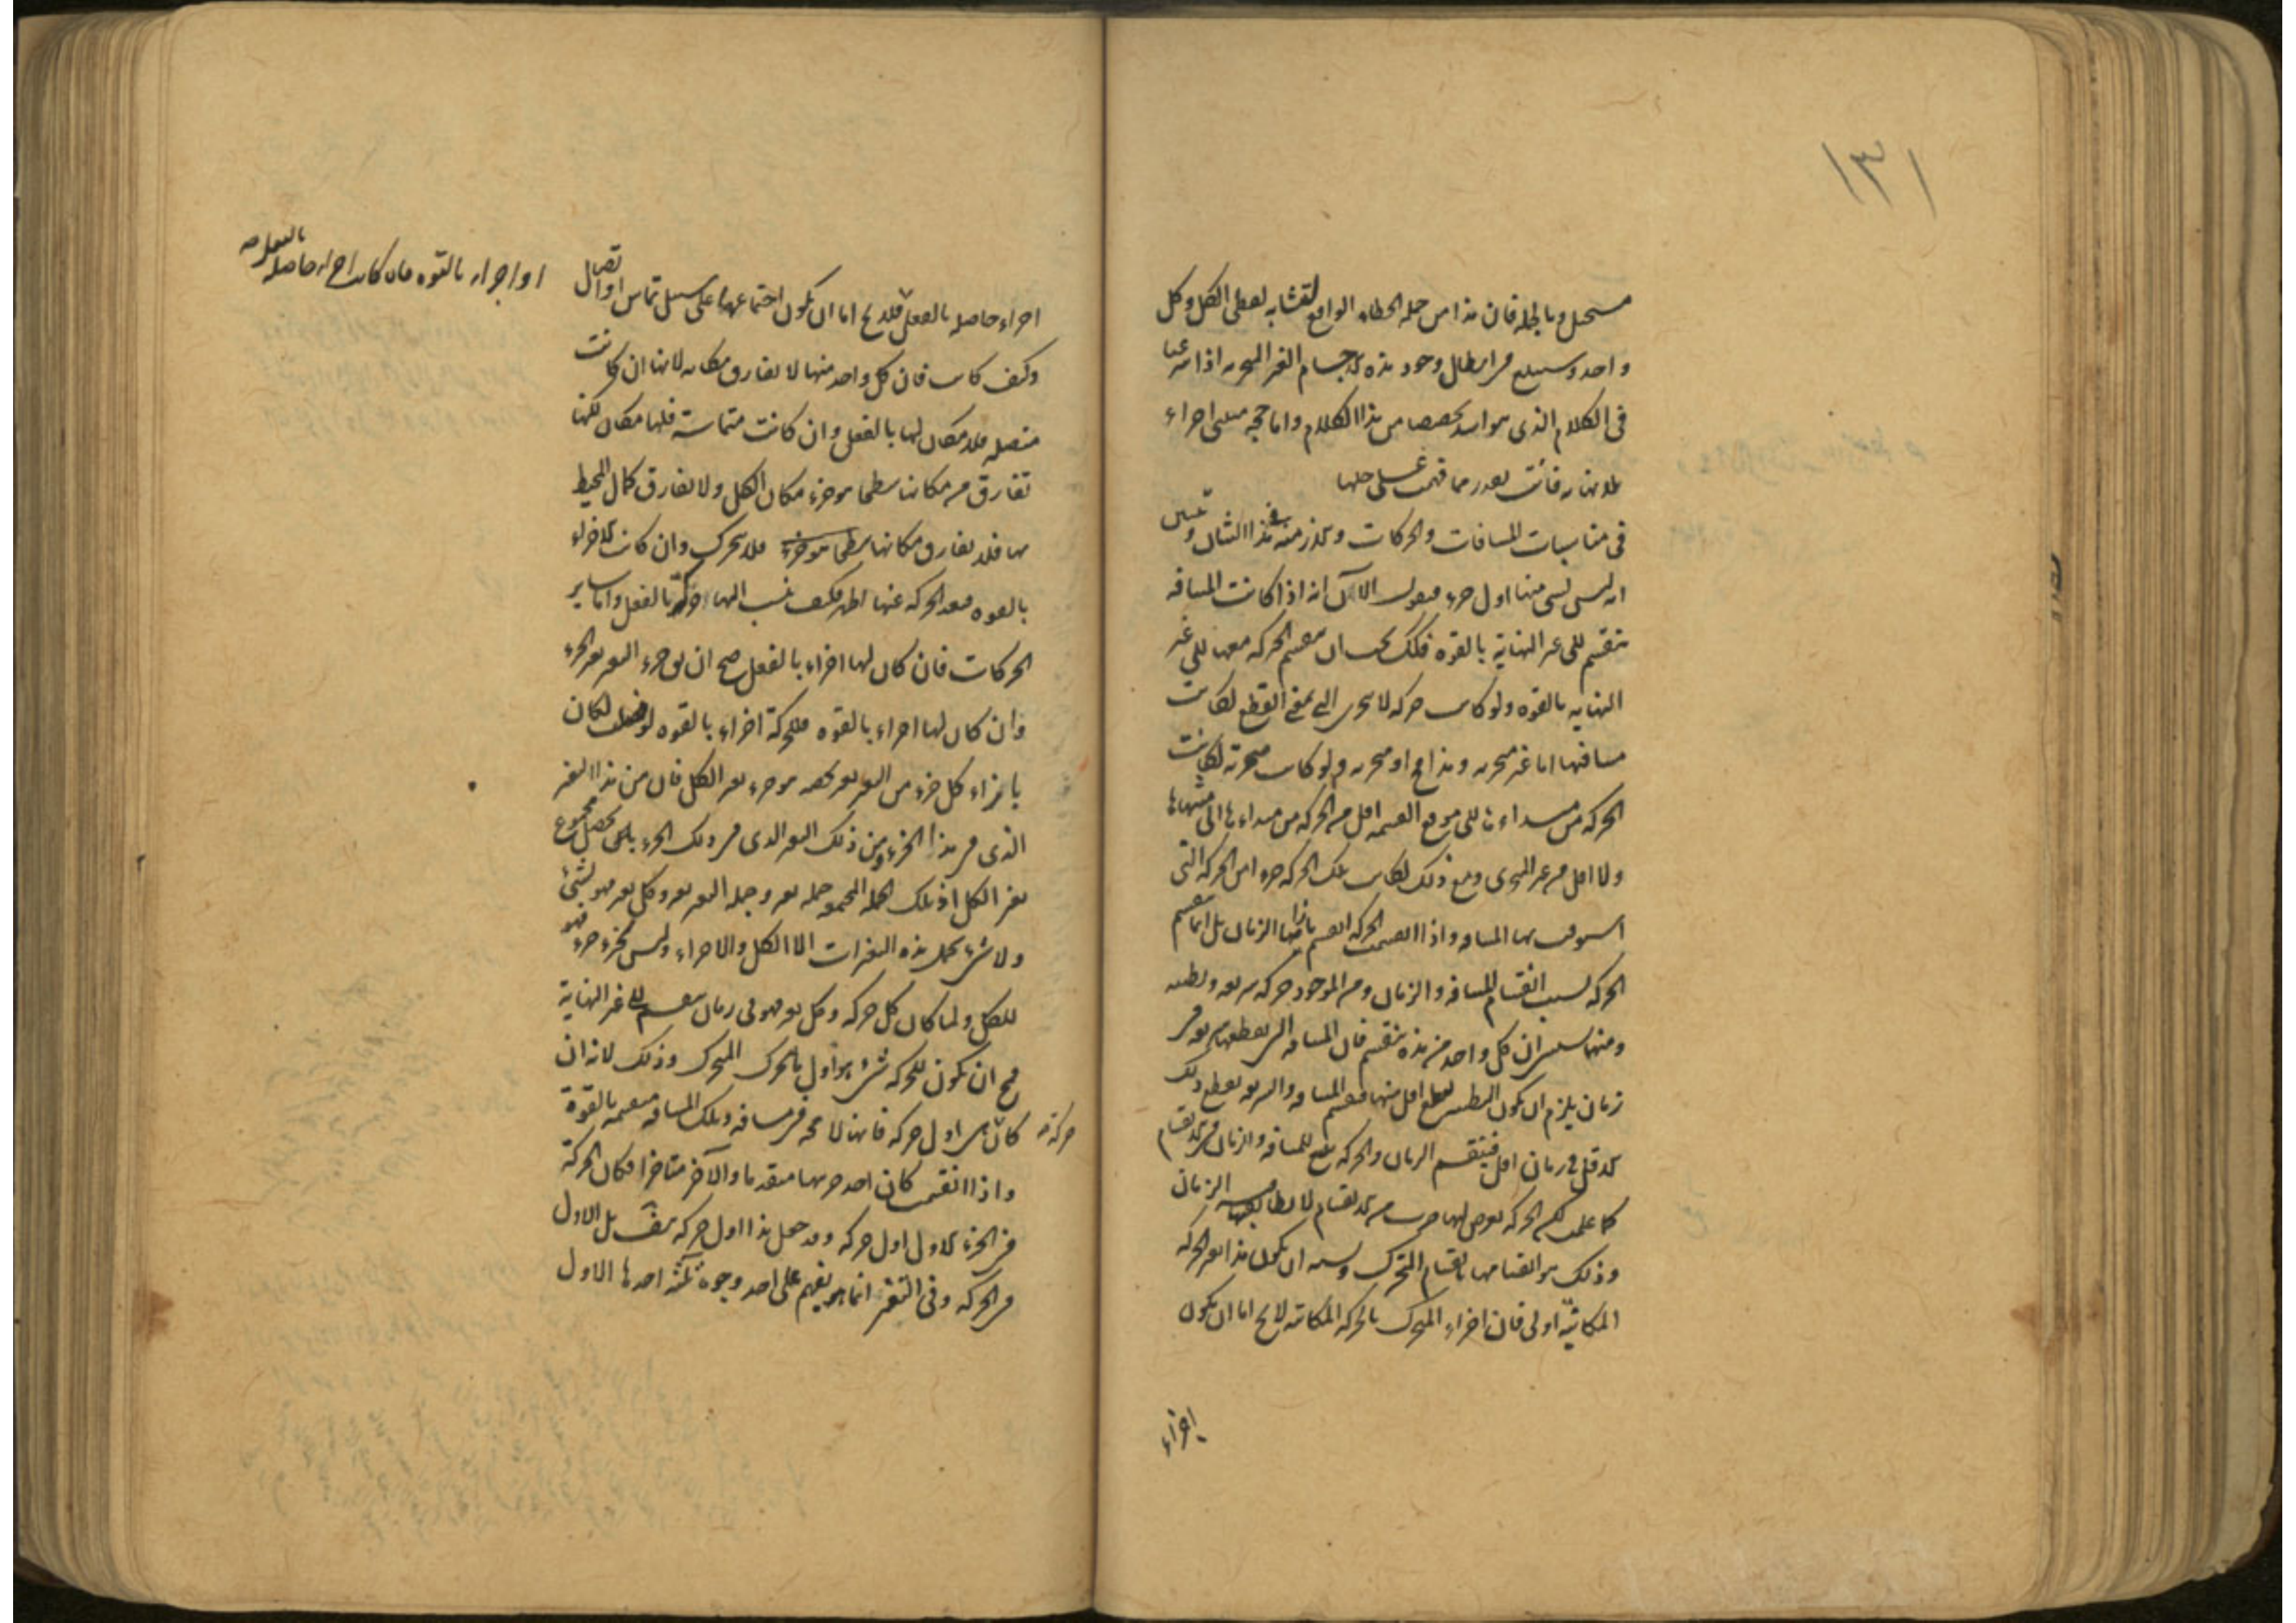 ١٣١
مستحيل وبالجملة فان هذا من جملة الخطاء الواقع لتشابه لفظى الكل وكل
واحد وسيبلغ من ابطال وجود هذه الاجسام الغير المتجزية اذا شرعنا
فى الكلام الذى هو اشد تخصصا من هذا الكلام واما حجج مثبتى اجزاء
بلا نهاية فانت تقدر مما فهمت على حلها
فى مناسبات المسافات والحركات و منه فى هذا الشأن وتبين
انه ليس لشى منها اول جزء فنقول الآن انه اذا كانت المسافة
تنقسم الى غير النهاية بالقوة فكذلك يجب ان تنقسم الحركة معها الى غير
النهاية بالقوة ولو كانت حركة لا تتجزى التى بمعنى القطع لكانت
مسافتها اما غير متجزية وهذا مح او متجزية ولو كانت متجزية لكانت
الحركة من مبداءها الى موقع القسمة اقل من الحركة من مبداءها الى منتهاها
ولا اقل من غير المتجزى ومع ذلك لكانت تلك الحركة جزءا من الحركة التى
استوفيت بها المسافة واذا انقسمت الحركة انقسم بازائها الزمان بل انما تنقسم
الحركة بسبب انقسام المسافة والزمان ومن الموجود حركة سريعة وبطيئة
ومنهما يتبين ان كل واحد من هذه تنقسم فان المسافة التى يقطعها سريعة فى
زمان يلزم ان يكون البطىء يقطع اقل منها فتنقسم المسافة والسريعة يقطع ذلك
الاقل فى زمان اقل فينقسم الزمان والحركة تتبع المسافة والزمان فى الانقسام
كما علمت لكن الحركة يعرض لها ضرب من الانقسام لا يطابقها فيه الزمان
وذلك هو انقسامها بانقسام المتحرك ويشبه ان يكون هذا لغير الحركة
المكانية اولى فان اجزاء المتحرك بالحركة المكانية لايخ اما ان يكون
اجزاء
اجزاء حاصلة بالفعل فلايخ اما ان يكون اجتماعها على سبيل تماس او اتصال
او اجزاء بالقوة فان كانت اجزاء حاصلة بالفعل صح
وكيف كانت فان كل واحد منها لا يفارق مكانه لانها ان كانت
متصلة فلا مكان لها بالفعل وان كانت متماسة فلها مكان لكنها
تفارق من مكانها سطحا هو جزء مكان الكل ولا تفارق كمال المحيط
بها فلا يفارق مكانها فلا يتحرك وان كانت الاجزاء
بالقوة فبعد الحركة عنها اظهر فكيف ينسب اليها حركة بالفعل واما ساير
الحركات فان كان لها اجزاء بالفعل صح ان يق جزء التغير تغير الجزء
وان كان لها اجزاء بالقوة فللحركة اجزاء بالقوة لو فصلت لكان
بازاء كل جزء من التغير تغير يخصه هو جزء تغير الكل فان من هذا التغير
الذى فى هذا الجزء ومن ذلك التغير الذى فى ذلك الجزء يحصل مجموع
تغير الكل اذ تلك الجملة المجموعة جملة تغير وجملة التغير تغير وكل تغير فهو لشئ
ولا شئ يحمل هذه التغيرات الا الكل والاجزاء وليس لجزء جزء فهو
للكل ولما كان كل حركة وكل تغير فهو فى زمان ينقسم الى غير النهاية
فمح ان تكون للحركة شئ هو اول ما يتحرك المتحرك وذلك لانه ان
كان شئ اول حركة فانها لا محة فى مسافة وتلك المسافة منقسمة بالقوة
حركة
واذا انقسمت كان احد جزئيها متقدما والآخر متاخرا فكان الحركة
فى الجزء الاول اول حركة وقد جعل هذا اول حركة هف بل الاول
فى الحركة وفى التغير انما هو يفهم على احد وجوه ثلثة احدها الاول